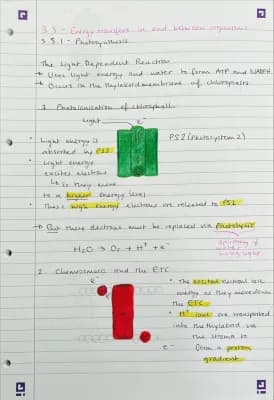 3.5 - Energy transfers in and between organisms
3.5.1 - Photosynthesis
The Light Dependent Reaction
→ Uses light energy and water to form ATP and NADPH
→ Occurs in the thylakoid membrane of chloroplasts
1. Photoionisation of chlorophyll
Light
e⁻
PS2 (Photosystem 2)
• Light energy is
absorbed by PS2
• Light energy
excites electrons
↳ so they move
to a higher energy level
• These high energy electrons are released to PS1
→ These electrons must be replaced via Photolysis
splitting of
water
using light
H₂O → O₂ + H⁺ + e⁻
2. Chemiosmosis and the ETC
e⁻
• The excited electrons lose
energy as they move down
the ETC
• H⁺ ions are transported
into the thylakoid via
the stroma to
form a proton
gradient
e⁻